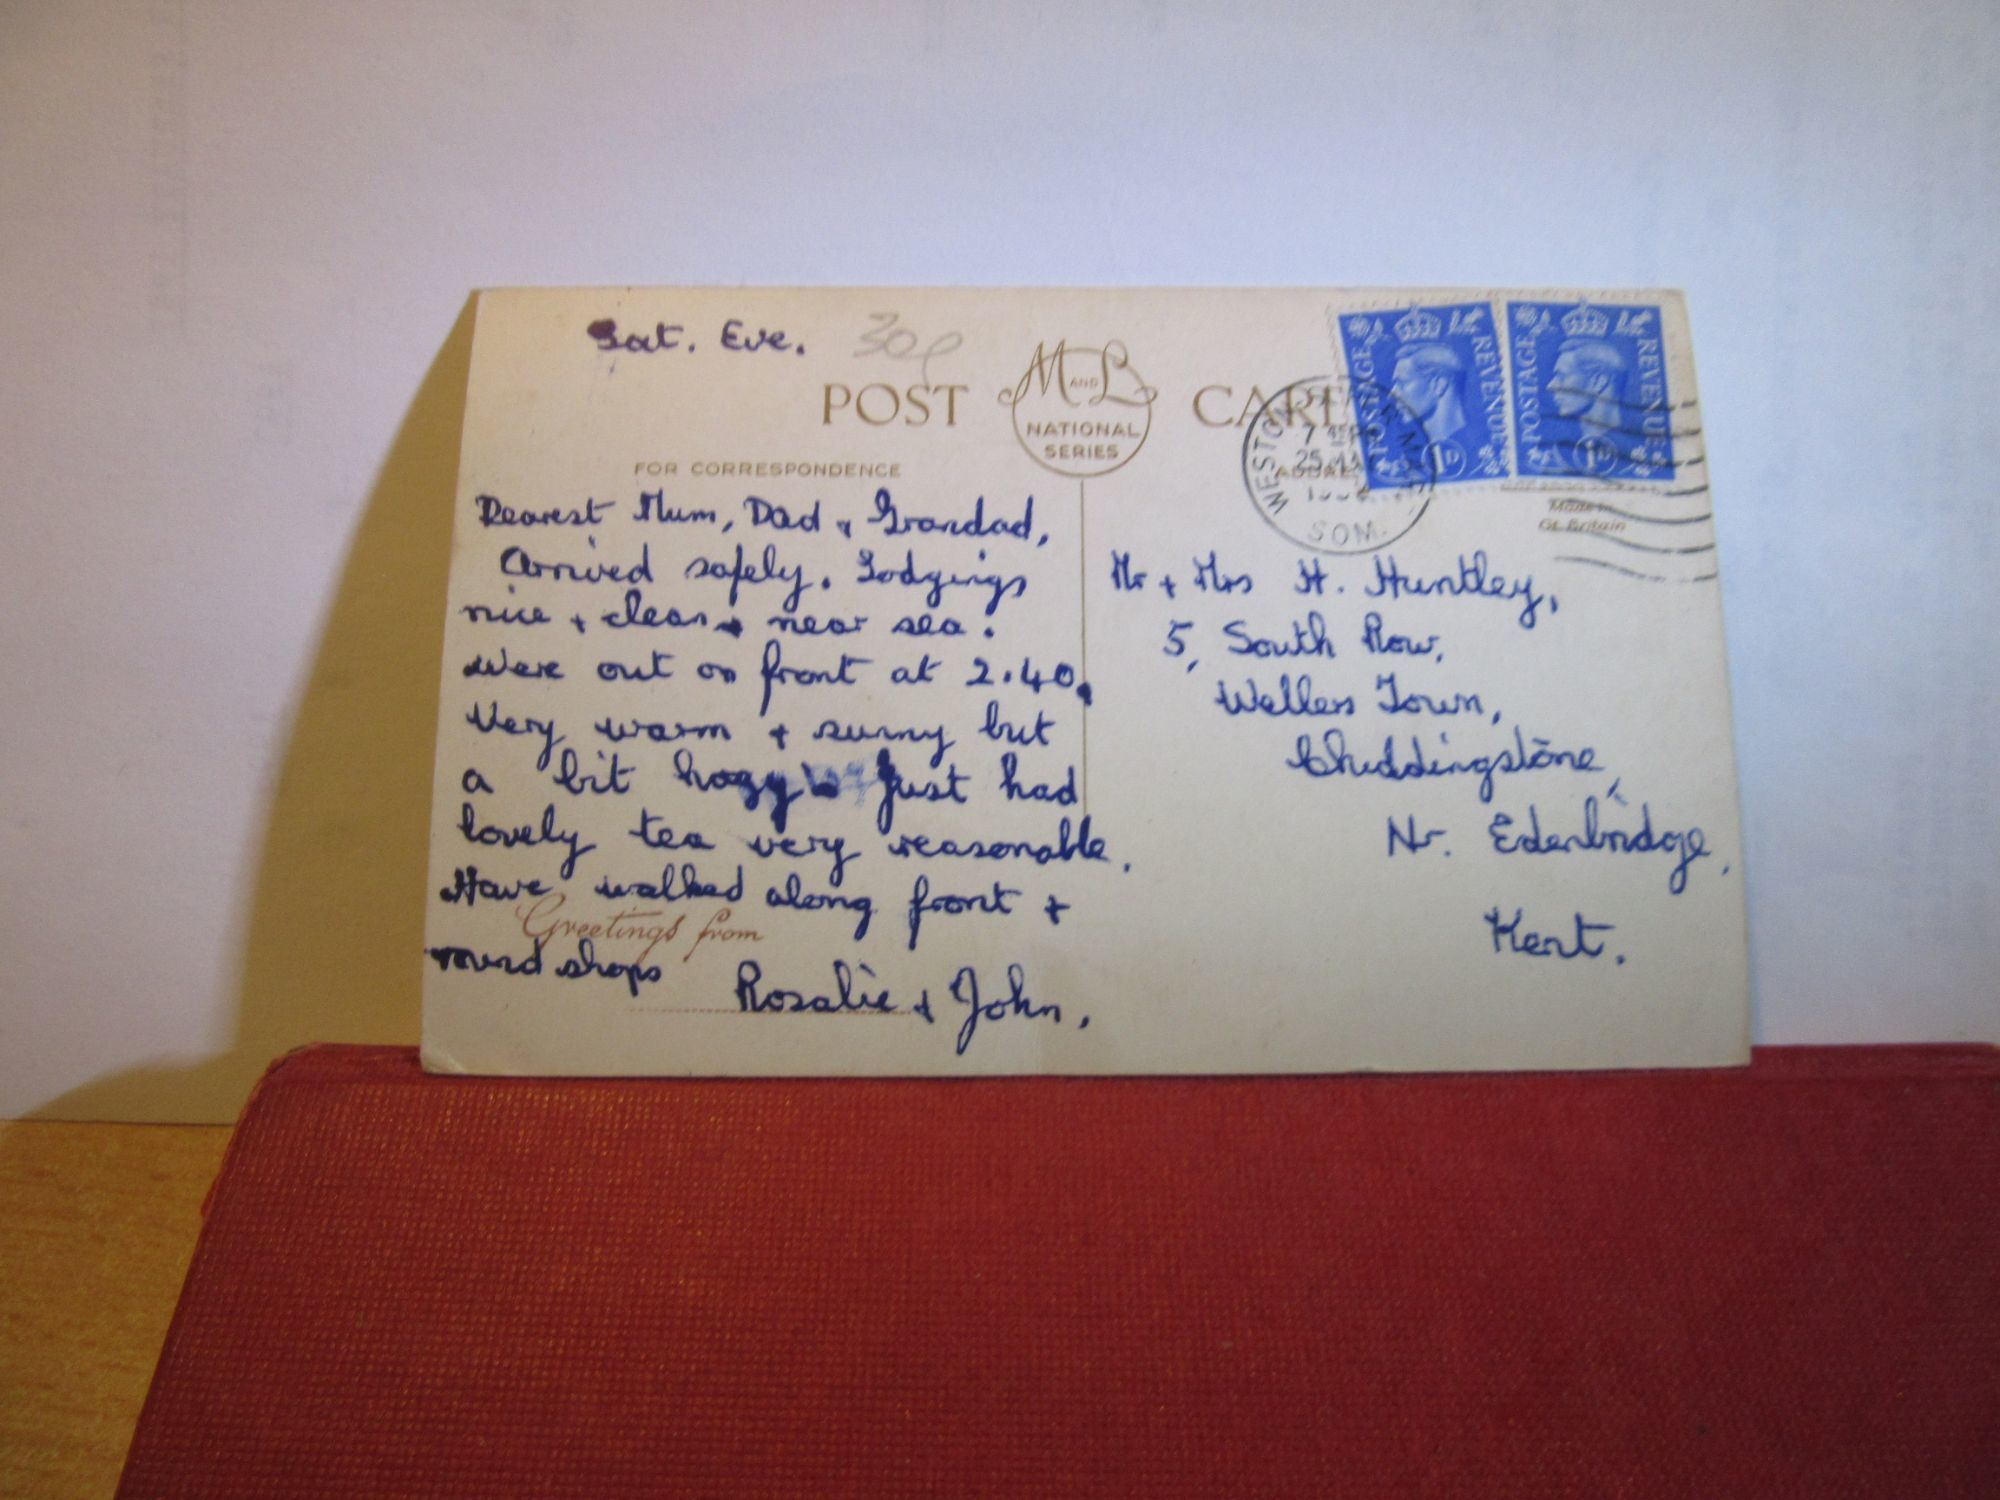 Sat. Eve.
30p
POST CARD
M AND L
NATIONAL
SERIES
FOR CORRESPONDENCE
Dearest Mum, Dad + Grandad,
Arrived safely. Lodgings
nice + clean + near sea.
Were out on front at 2.40.
Very warm + sunny but
a bit hazy. Just had
lovely tea very reasonable.
Have walked along front +
round shops
Greetings from
Rosalie + John.
POSTAGE REVENUE
1D
POSTAGE REVENUE
1D
WESTON
SOM.
Made in
Gt. Britain
Mr + Mrs H. Huntley,
5, South Row,
Wellers Town,
Chiddingstone,
Nr. Edenbridge,
Kent.